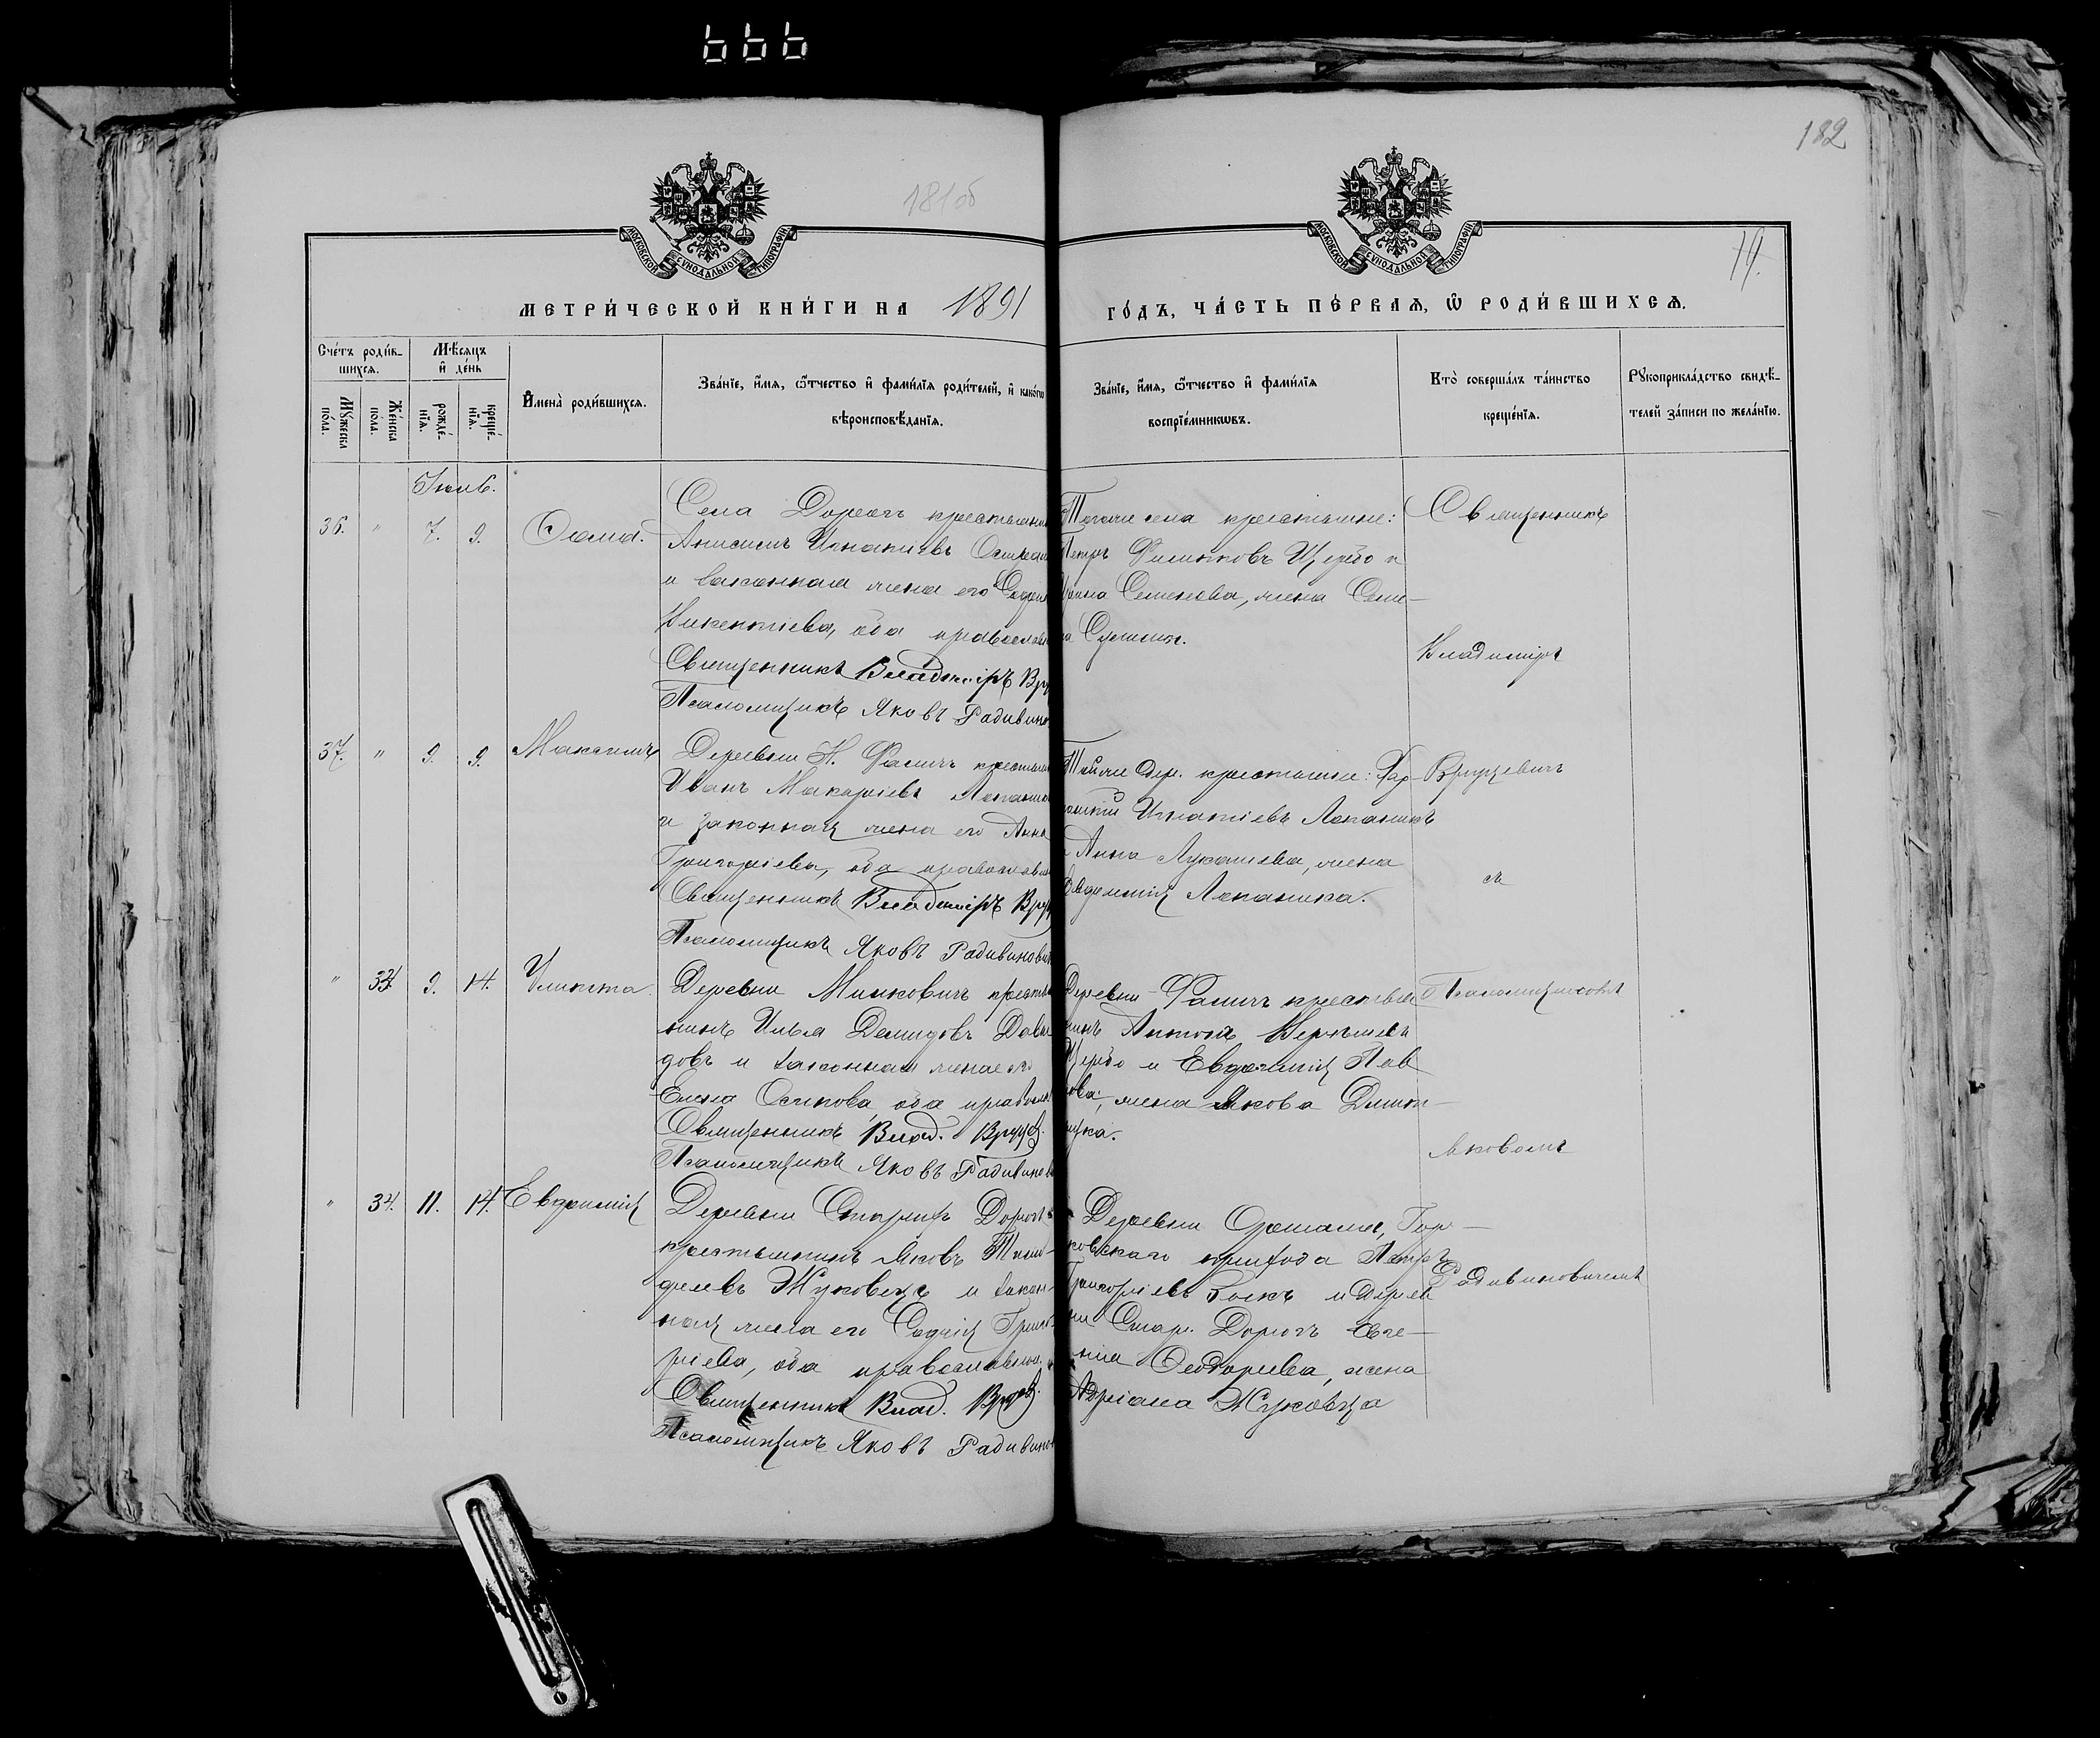 666
182
181об
МОСКОВСКОЙ СѴНОДАЛЬНОЙ ТИПОГРАФІИ
МОСКОВСКОЙ СѴНОДАЛЬНОЙ ТИПОГРАФІИ
19.
МЕТРИ́ЧЕСКОЙ КНИ́ГИ НА 1891
ГО́ДЪ, ЧА́СТЬ ПЕ́РВАѦ, Ѿ РОДИ́ВШИХСѦ.
Сче́тъ роди́в-
шихсѧ.
Мѣ́сѧцъ
и҆ де́нь
Мꙋ́жеска
по́ла.
Же́нска
по́ла.
рожде́-
нїѧ.
креще́-
нїѧ.
И҆мена̀ роди́вшихсѧ.
Зва́нїе, и҆́мѧ, ѻ҆́тчество и҆ фами́лїѧ роди́телей, и҆ како́гѡ
вѣроисповѣ́данїѧ.
Зва́нїе, и҆́мѧ, ѻ҆́тчество и҆ фами́лїѧ
воспрїе́мникѡвъ.
Кто̀ соверша́лъ та́инство
креще́нїѧ.
Рꙋкоприкла́дство свидѣ́-
телей за́писи по жела́нїю.
36. " 7. 9. Ѳома.
Села Дорогъ крестьянин
Анисимъ Игнатіевъ
и законная жена его Софія
Викентіева, оба православн
Священникъ Владиміръ Вру
Псаломщикъ Яковъ Радивино
Тогоже села крестьяне:
Петръ Филипповъ Щербо и
Ирина Семенова, жена Семе-
на
Священникъ
Владиміръ
37. " 9. 9. Максимъ
Деревни Н. Фаличъ крестьян
Иванъ Макаріевъ Лопаник
и законная жена его Анна
Григоріева, оба православн
Священникъ Владиміръ Вру
Псаломщикъ Яковъ Радивинови
Тойже дер. крестьяне: Хар-
Игнатіевъ Лопаникъ
и Анна Лукашева, жена
Евдокима Лопаника.
Вруцевичъ
съ
" 33. 9. 14. Улита
Деревни Минковичъ крестья
нинъ Илья Демидовъ Давы
довъ и законная жена его
Елена Осипова, оба правосл
Священникъ Влад. Вруц.
Псаломщикъ Яковъ Радивинов
Деревни Фаличъ крестья
нинъ Антоній
Щербо и Евдокія Пав
лова, жена Якова
Псаломщикомъ
Яковомъ
" 34. 11. 14. Евдокія
Деревни Старыхъ Дорогъ
крестьянинъ Яковъ Тимо-
феевъ Жуковецъ и закон-
ная жена его Софія Григо-
ріева, оба православные
Священникъ Влад. Вруц.
Псаломщикъ Яковъ Радивино
Деревни
ковскаго прихода Петръ
Григоріевъ и дерев
ни Стар. Дорогъ Евге-
нія Ѳеодорова, жена
Адріана Жуковца
Радивиновичемъ